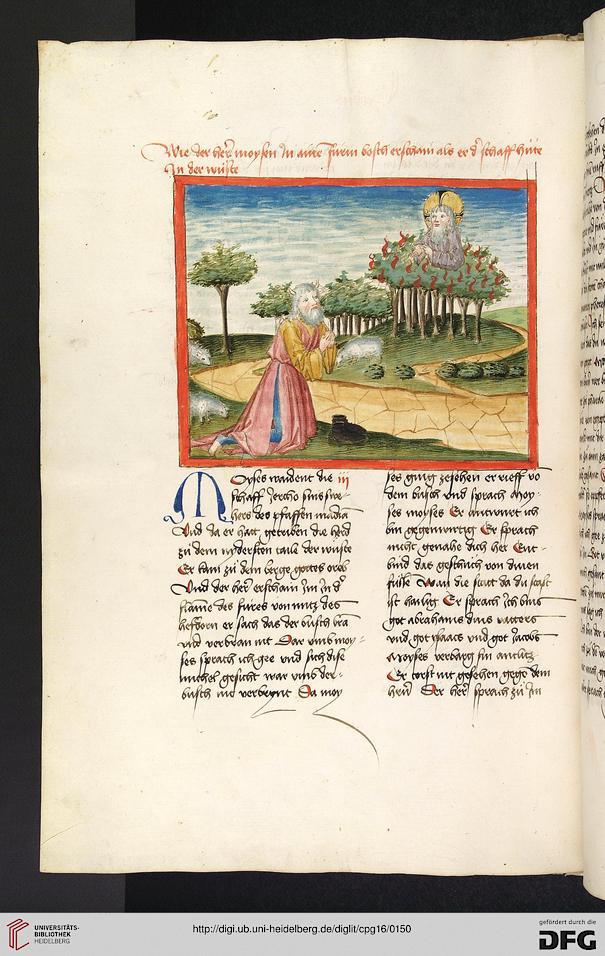 Wie der her moysen In aine fúrin bosch erschain als er d' schaff hüte
In der wúste
Moyses waident die iij
schaff Jetcho sins swe¬
hers des pfaffen madiā
Vnd da er hatt getriben die herd
zu dem indersten taile der wuste
Er kam zu dem berge gottes oreb
Vnd der her erscham Im In d'
flame des fures von mitz des
heckdorn er sach das der busch bran
vnd verbran nit Dar vmb moy¬
ses sprach ich gee vnd sich dise
michel gesicht war vmb der¬
busch nit verbrynt Da moy
ses ging zesehen er rieff vō
dem busch vnd sprach moy¬
ses moyses Er antwurt ich
bin gegenwurtig Er sprach
nicht genahe dich her Ent¬
bind das geschuch von dinen
fusse Wan die statt da du stast
ist hailig Er sprach Ich bins
got abrahams dins vatters
vnd got ysaacs vnd got Jacobs
Moyses verbarg sin antlitz
Er torst nit gesehen gegē dem
herñ Der her sprach zu Im
UNIVERSITÄTS-
BIBLIOTHEK
HEIDELBERG
http://digi.ub.uni-heidelberg.de/diglit/cpg16/0150
gefördert durch die
DFG